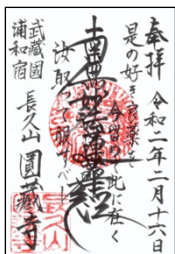 奉拝 令和二年二月十六日
是の好き良薬を
今留めて此に在く
南無妙法蓮華経
汝取って服すべし
武蔵国
浦和宿
長久山 圓蔵寺